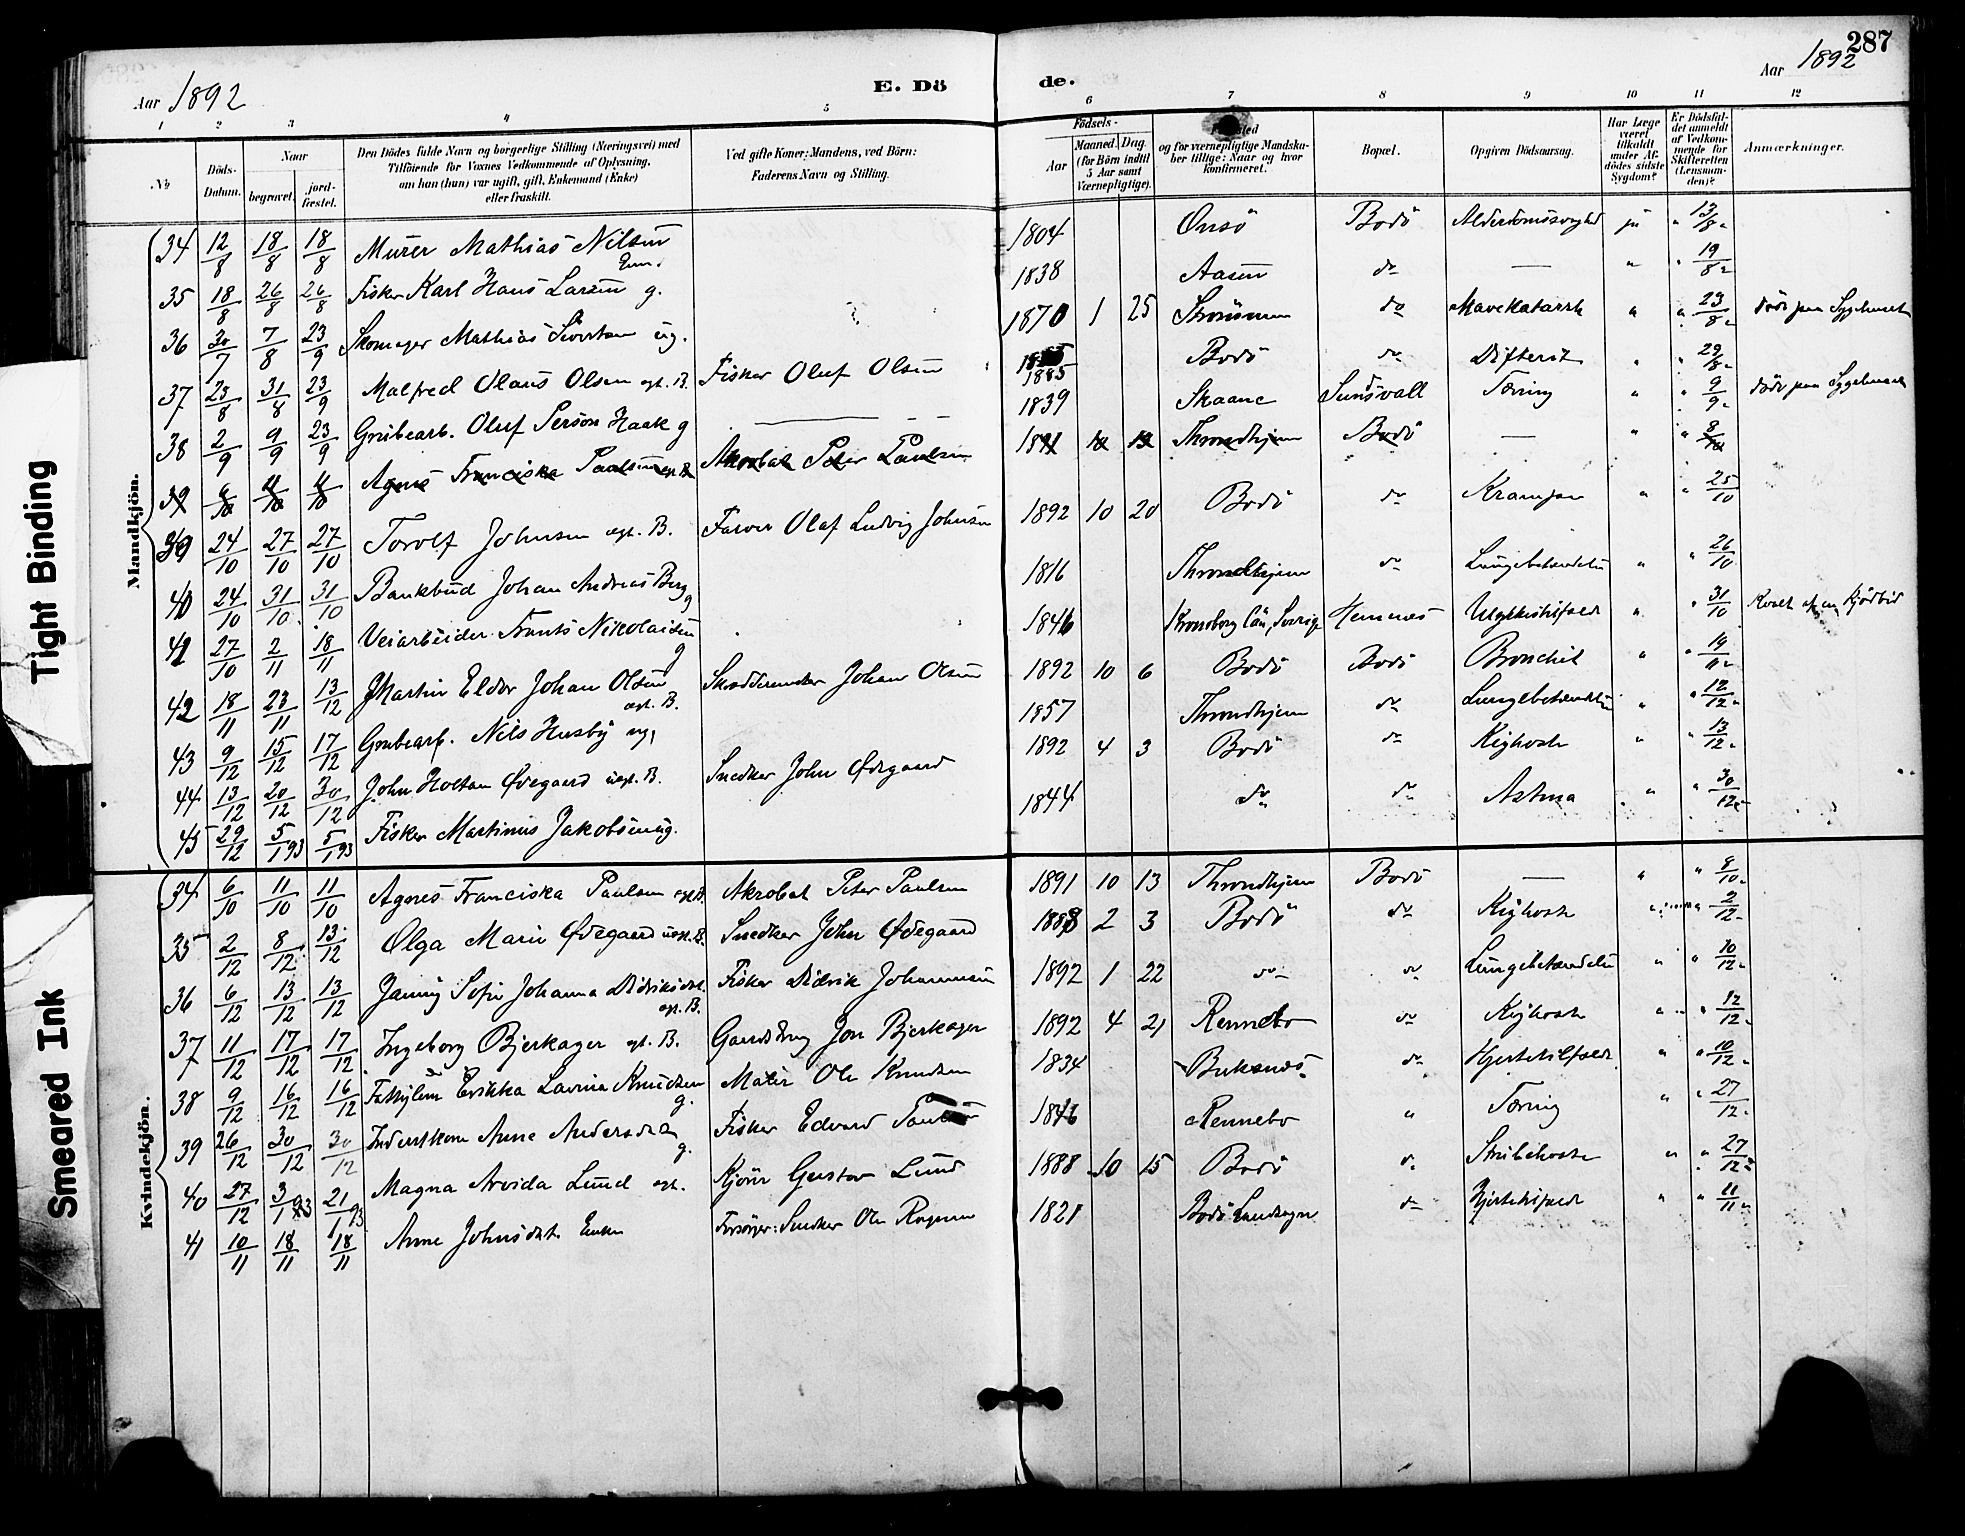 287
Aar 1892 E. Dö de. Aar 1892
1 2 3 4 5 6 7 8 9 10 11 12
No Döds-Datum. Naar begravet. jord-fæstet. Den Dödes fulde Navn og borgerlige Stilling (Næringsvei) med Tilföiende for Voxnes Vedkommende af Oplysning, om han (hun) var ugift, gift, Enkemand (Enke) eller fraskilt. Ved gifte Koner: Mandens, ved Börn: Faderens Navn og Stilling. Födsels- Aar Maaned. Dag. (for Börn indtil 5 Aar samt Værnepligtige). og for værnepligtige Mandska-ber tillige: Naar og hvor konfirmeret. Bopæl. Opgiven Dödsaarsag. Har Læge været tilkaldt under Af-dödes sidste Sygdom? Er Dödsfal-det anmeldt af Vedkom-mende for Skifteretten (Lensman-den)? Anmærkninger.
Mandkjön.
34 12/8 18/8 18/8 Murer Mathias Nilsen Enm. 1804 Onsö Bodö ja " 13/8
35 18/8 26/8 26/8 Fisker Karl Hans Larsen g. 1838 Aasen do — " " 19/8
36 30/7 7/8 23/9 Skomager Mathias Sivertsen ug. 1870 1 25 Strömmen do Mavekatarrh " " 23/8 död paa Sygehuset
37 23/8 31/8 23/9 Malfred Olaus Olsen egt. B. Fisker Oluf Olsen 1885 Bodö do Difterit " " 29/8
38 2/9 9/9 23/9 Grubearb. Oluf Person Haak g — 1839 Skaane Sundsvall Tæring " " 9/9 död paa Sygehuset
39 6/10 11/10 11/10 Agnes Franciska Paulsen egt. B. Akrobat Peter Paulsen 1891 10 13 Throndhjem Bodö — " " 8/10
39 24/10 27/10 27/10 Torolf Johnsen egt. B. Farver Olaf Ludvig Johnsen 1892 10 20 Bodö do Krampe " " 25/10
40 24/10 31/10 31/10 Bankbud Johan Andreas Berg g 1816 Throndhjem do Lungebetændelse " " 26/10
41 27/10 2/11 18/11 Veiarbeider Frants Nikolaisen g 1846 Kronoborg Län, Sverige Hemnes Ulykkestilfæld " " 31/10 Kvalt af en Kjödbid
42 18/11 23/11 13/12 Martin Eldor Johan Olsen egt. B. Skreddermester Johan Olsen 1892 10 6 Bodö Bodö Bronchit " " 19/11
43 9/12 15/12 17/12 Grubearb. Nils Husby ug. 1857 Throndhjem do Lungebetændelse " " 12/12
44 13/12 20/12 30/12 John Holtan Ødegaard uegt. B. Snedker John Ødegaard 1892 4 3 Bodö do Kighoste " " 13/12
45 29/12 5/1 93 5/1 93 Fisker Martinus Jakobsen ug. 1844 do do Astma " " 30/12
Kvindekjön.
34 6/10 11/10 11/10 Agnes Franciska Paulsen egt. B. Akrobat Peter Paulsen 1891 10 13 Throndhjem Bodö — " " 8/10
35 2/12 8/12 13/12 Olga Marie Ødegaard uegt. B. Snedker John Ødegaard 1888 2 3 Bodö do Kighoste " " 2/12
36 6/12 13/12 13/12 Janny Sofie Johanna Didriksdt. egt. B. Fisker Didrik Johannesen 1892 1 22 do do Lungebetændelse " " 10/12
37 11/12 17/12 17/12 Ingeborg Bjerkager egt. B. Gaardbrug Jon Bjerkager 1892 4 21 Rennebo do Kighoste " " 12/12
38 9/12 16/12 16/12 Erikka Lavina Knudsen g. Maler Ole Knudsen 1834 do Hjertetilfælde " " 10/12
39 26/12 30/12 30/12 Anne Andersdtr g. Fisker Edvard 1846 Rennebo " Tæring " " 27/12
40 27/12 3/1 93 21/1 93 Magna Arvida Lund egt. Kjörer Gustav Lund 1888 10 15 Bodö do Strubehoste " " 27/12
41 10/11 18/11 18/11 Anne Johnsdt. Enke Forsörger: Snedker Ole 1821 Bodö Landsogn do Hjertetilfælde " " 11/11
Tight Binding
Smeared Ink